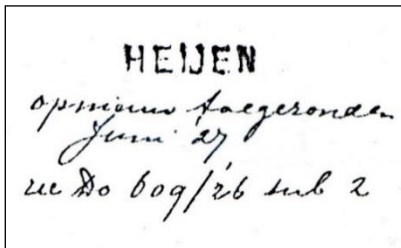 HEIJEN
opnieuw toegezonden
Juni '27
zie Do 609/'26 sub 2